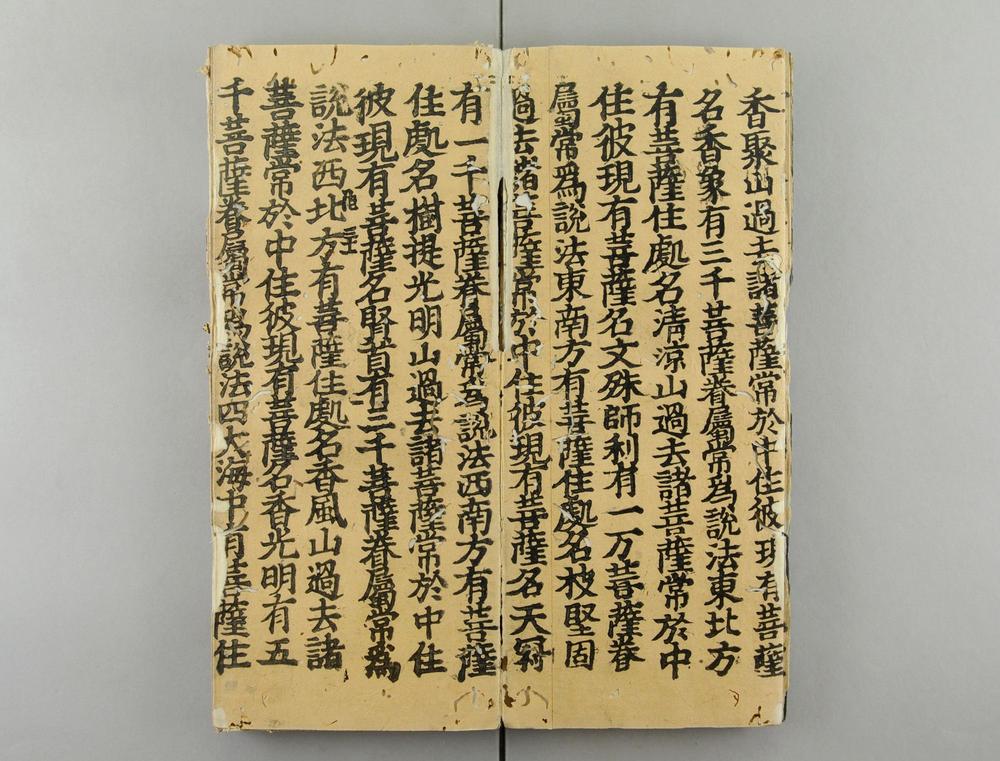 香聚山過去諸菩薩常於中住彼現有菩薩
名香象有三千菩薩眷屬常爲說法東北方
有菩薩住處名清涼山過去諸菩薩常於中
住彼現有菩薩名文殊師利有一万菩薩眷
屬常爲說法東南方有菩薩住處名枝堅固
過去諸菩薩常於中住彼現有菩薩名天冠
有一千菩薩眷屬常爲說法西南方有菩薩
住處名樹提光明山過去諸菩薩常於中住
彼現有菩薩名賢首有三千菩薩眷屬常爲
說法西北方有菩薩住處名香風山過去諸
菩薩常於中住彼現有菩薩名香光明有五
千菩薩眷屬常爲說法四大海中有菩薩住